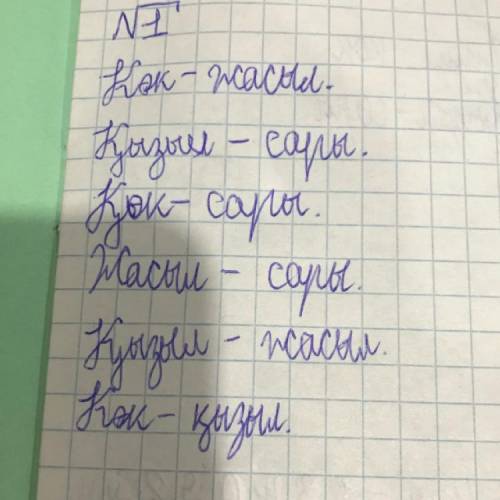 №1
Көк - жасыл.
Қызыл - сары.
Көк - сары.
Жасыл - сары.
Қызыл - жасыл.
Көк - қызыл.